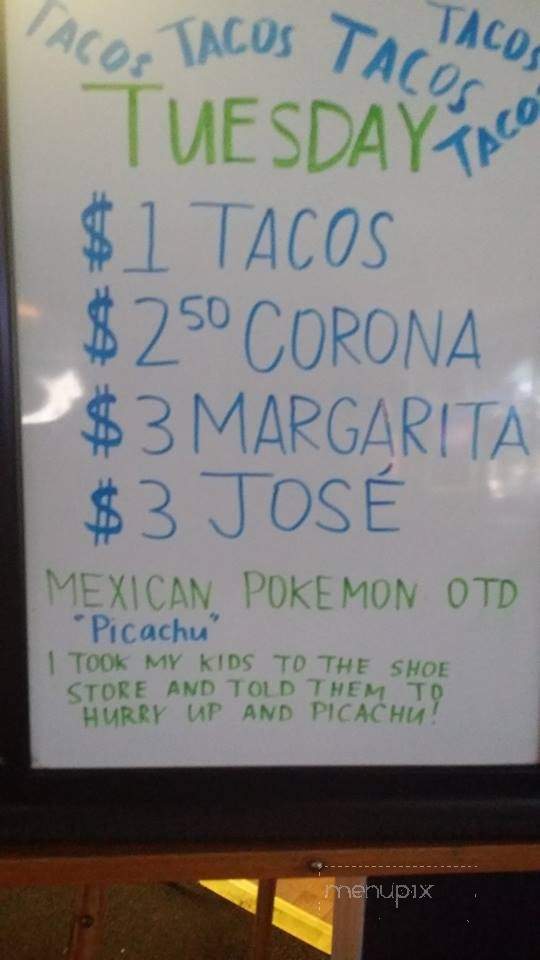 TACOS TACOS TACOS TACOS
TACOS
TUESDAY
$1 TACOS
$2 50 CORONA
$3 MARGARITA
$3 JOSÉ
MEXICAN POKEMON OTD
"Picachu"
I TOOK MY KIDS TO THE SHOE
STORE AND TOLD THEM TO
HURRY UP AND PICACHU!
menupix